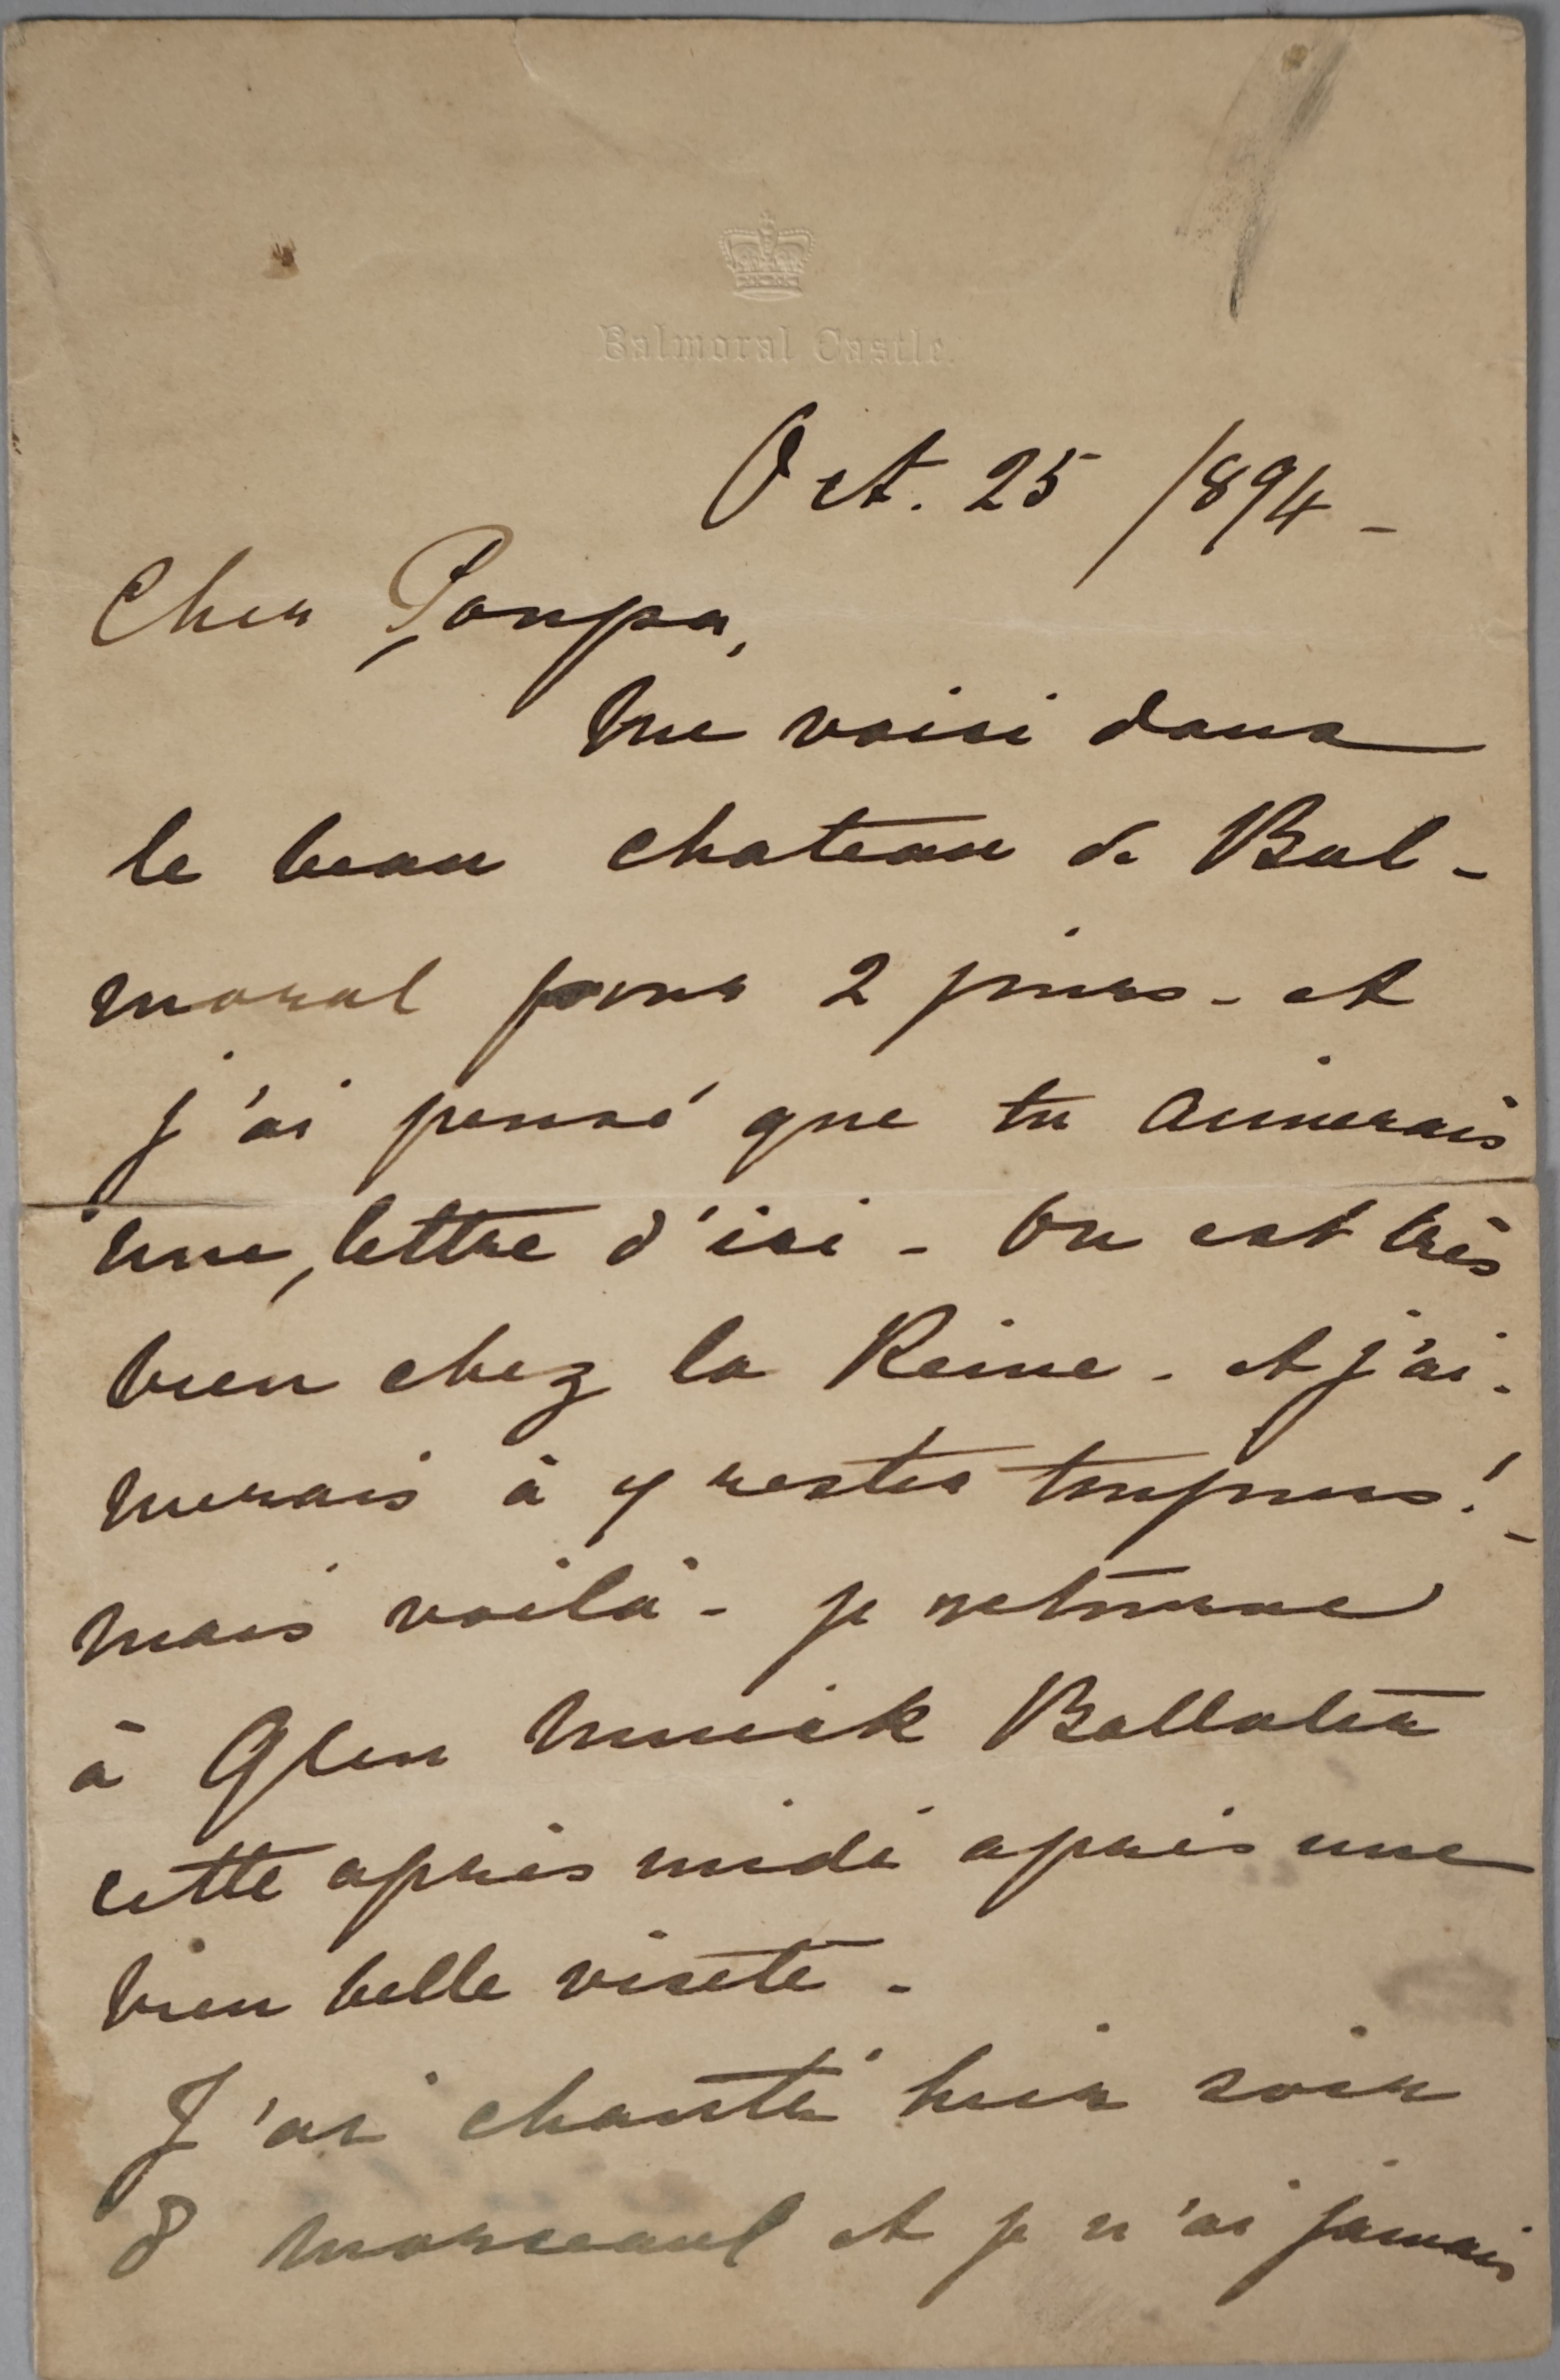 Balmoral Castle.
Oct. 25 /894 -
Cher Poupa,
Me voici dans
le beau chateau de Bal-
moral pour 2 jours - et
j'ai pensé que tu aimerais
une lettre d'ici - On est très
bien chez la Reine - et j'ai-
merais à y rester toujours! -
Mais voilà - je retourne
à Glen Muick Ballater
cette après midi après une
bien belle visite -
J'ai chanté hier soir
8 morceaux et je n'ai jamais